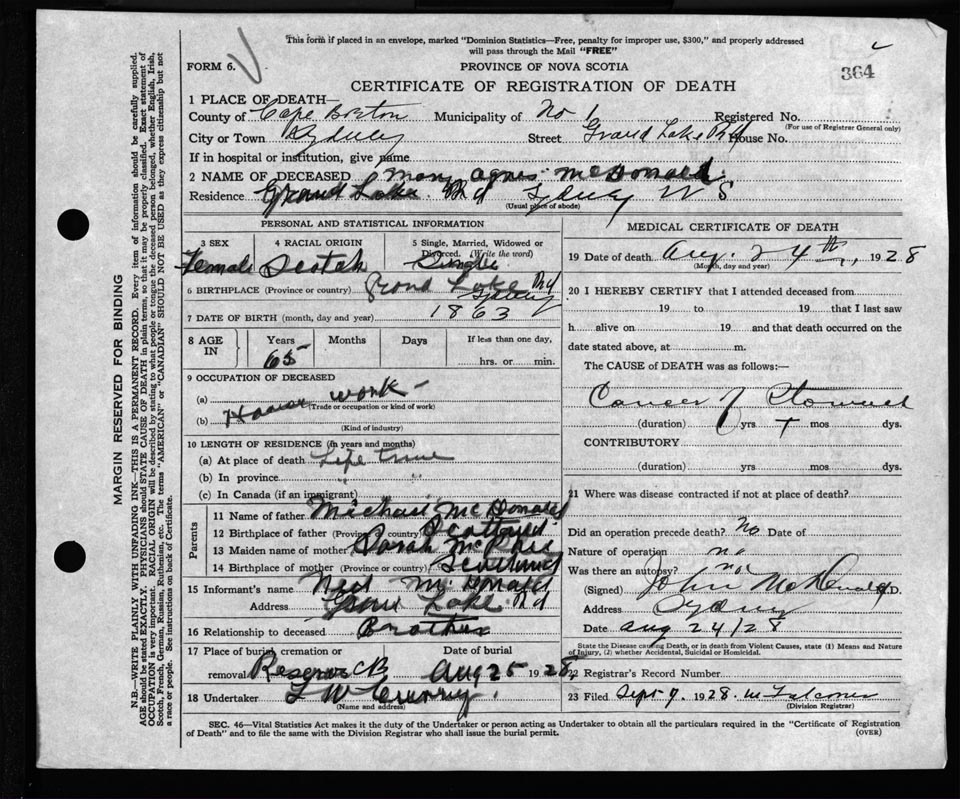 This form if placed in an envelope, marked "Dominion Statistics—Free, penalty for improper use, $300," and properly addressed
will pass through the Mail "FREE"
FORM 6.
PROVINCE OF NOVA SCOTIA
364
CERTIFICATE OF REGISTRATION OF DEATH
1 PLACE OF DEATH—
County of Cape Breton Municipality of No 1 Registered No.
(For use of Registrar General only)
City or Town Sydney Street Grand Lake Rd House No.
If in hospital or institution, give name
2 NAME OF DECEASED Mary Agnes McDonald
Residence Grand Lake Rd Sydney N S
(Usual place of abode)
PERSONAL AND STATISTICAL INFORMATION
3 SEX 4 RACIAL ORIGIN 5 Single, Married, Widowed or Divorced. (Write the word)
Female Scotch Single
6 BIRTHPLACE (Province or country) Grand Lake Rd Sydney
7 DATE OF BIRTH (month, day and year) 1863
8 AGE IN Years Months Days If less than one day,
65 hrs. or min.
9 OCCUPATION OF DECEASED
(a) House work
(Trade or occupation or kind of work)
(b)
(Kind of industry)
10 LENGTH OF RESIDENCE (in years and months)
(a) At place of death Life time
(b) In province " "
(c) In Canada (if an immigrant)
Parents
11 Name of father Michael McDonald
12 Birthplace of father (Province or country) Scotland
13 Maiden name of mother Sarah McPhee
14 Birthplace of mother (Province or country) Scotland
15 Informant's name Neil McDonald
Address Grand Lake Rd
16 Relationship to deceased Brother
17 Place of burial, cremation or removal Date of burial
Reserve CB Aug 25 1928
18 Undertaker L W Curry
(Name and address)
MEDICAL CERTIFICATE OF DEATH
19 Date of death Aug. 24th, 1928
(Month, day and year)
20 I HEREBY CERTIFY that I attended deceased from
19 to 19 that I last saw
h alive on 19 and that death occurred on
date stated above, at m.
The CAUSE of DEATH was as follows:—
Cancer of Stomach
(duration) yrs mos dys.
CONTRIBUTORY
(duration) yrs mos dys.
21 Where was disease contracted if not at place of death?
Did an operation precede death? No Date of
Nature of operation no
Was there an autopsy? no
(Signed) John McDonald M.D.
Address Sydney
Date Aug 24/28
State the Disease causing Death, or in death from Violent Causes, state (1) Means and Nature
of Injury, (2) whether Accidental, Suicidal or Homicidal.
22 Registrar's Record Number
23 Filed Sept 9, 1928. M Falconer
(Division Registrar)
SEC. 46—Vital Statistics Act makes it the duty of the Undertaker or person acting as Undertaker to obtain all the particulars required in the "Certificate of Registration
of Death" and to file the same with the Division Registrar who shall issue the burial permit.
(OVER)
MARGIN RESERVED FOR BINDING
N.B.—WRITE PLAINLY WITH UNFADING INK—THIS IS A PERMANENT RECORD. Every item of information should be carefully supplied.
AGE should be stated EXACTLY. PHYSICIANS should STATE CAUSE OF DEATH in plain terms, so that it may be properly classified. Exact statement of
OCCUPATION is very important. RACIAL ORIGIN will be described by stating to what people or tongue the deceased person belonged, whether English, Irish,
Scotch, French, German, Russian, Ruthenian, etc. The terms "AMERICAN" or "CANADIAN" SHOULD NOT BE USED as they express citizenship but not
a race or people. See instructions on back of Certificate.